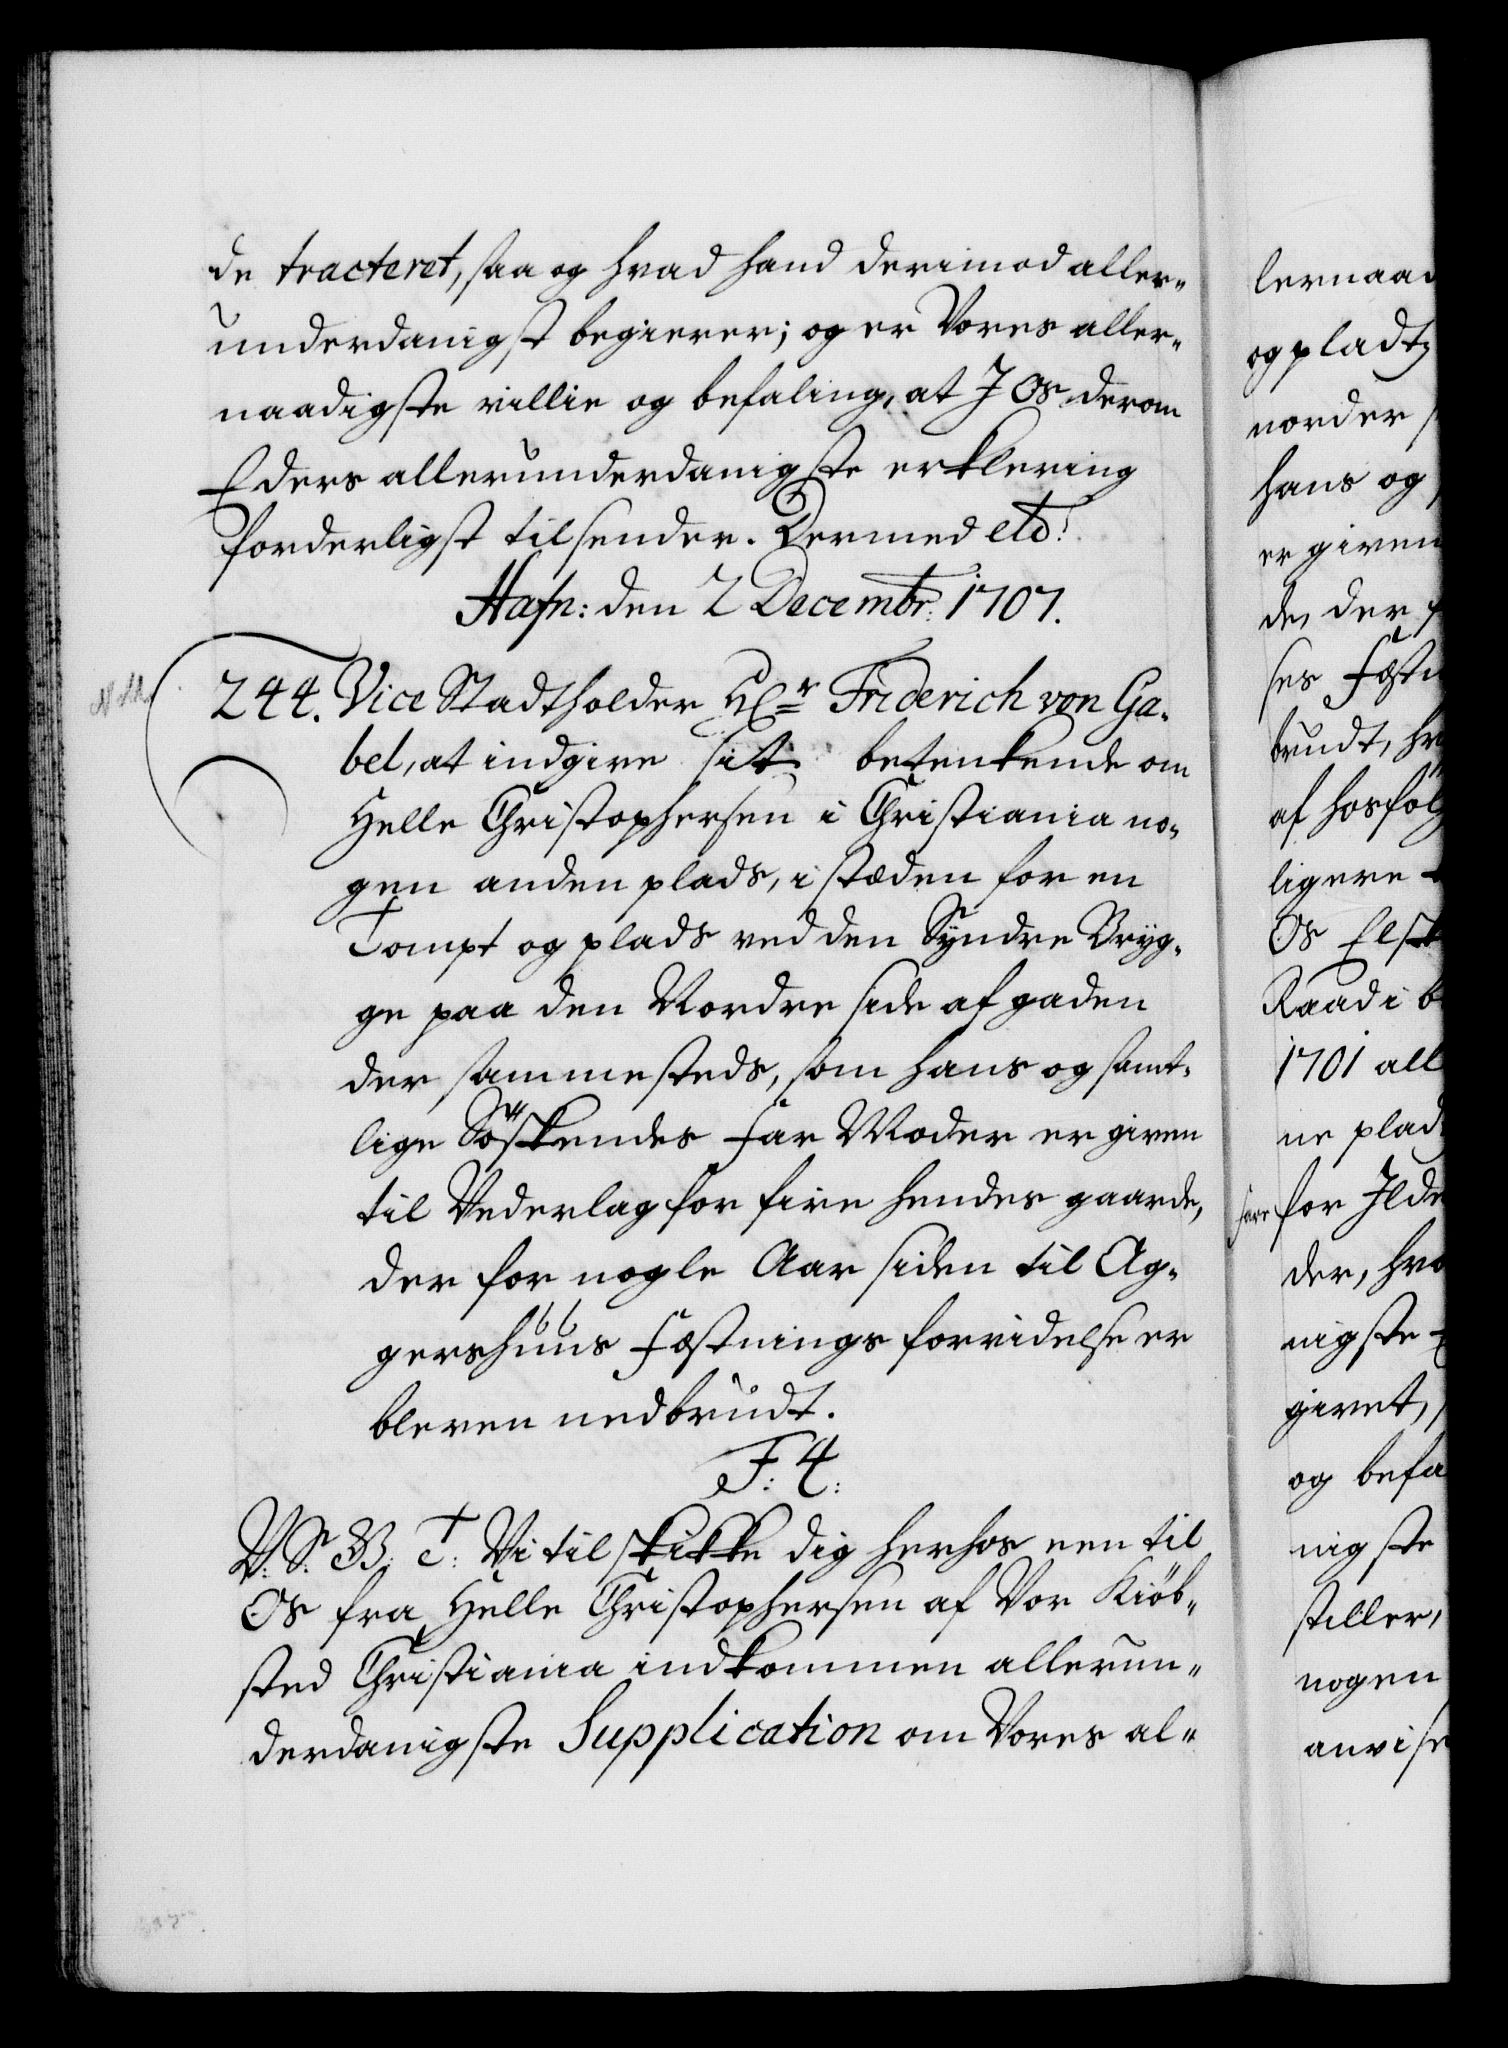 de tracteret, saa og hvad hand derimod aller„
underdanigst begierer; og er Vores aller„
naadigste villie og befaling, at I Os derom
Eders allerunderdanigste erklering
forderligst tilsender. Dermed etc:
Hafn: den 2 Decembr: 1707.
244. Vice Stadtholder Hr Friderich von Ga„
bel, at indgive sit betenkende om
Helle Christophersen i Christiania no„
gen anden plads, i stæden for en
Tompt og plads ved den Syndre Bryg„
ge paa den Nordre side af gaden
der sammesteds, som hans og samt„
lige Söskendes Far Moder er given
til Vederlag for fire hendes gaarde,
der for nogle Aar siden til Ag„
gershuus Fæstnings forvidelse er
bleven nedbrudt.
F: 4:
V: S: G: T: Vi tilskikke dig herhos een til
Os fra Helle Christophersen af Vor Kiöb„
sted Christiania indkommen allerun„
derdanigste Supplication om Vores al„
lernaad
og pladtz
norder
hans og
er given
de, der
ses Fæstn
brudt, hv
af hosföl
ligere
Os Elsk
Raad i b
1701 all
ne plad
for Ilde
der, hvo
nigste
givet,
og befa
nigste
stiller,
nogen
anvise